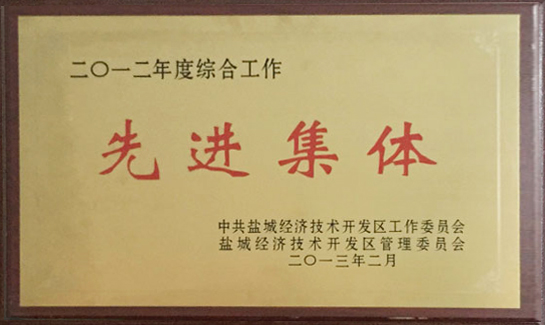 二〇一二年度综合工作
先进集体
中共盐城经济技术开发区工作委员会
盐城经济技术开发区管理委员会
二〇一三年二月